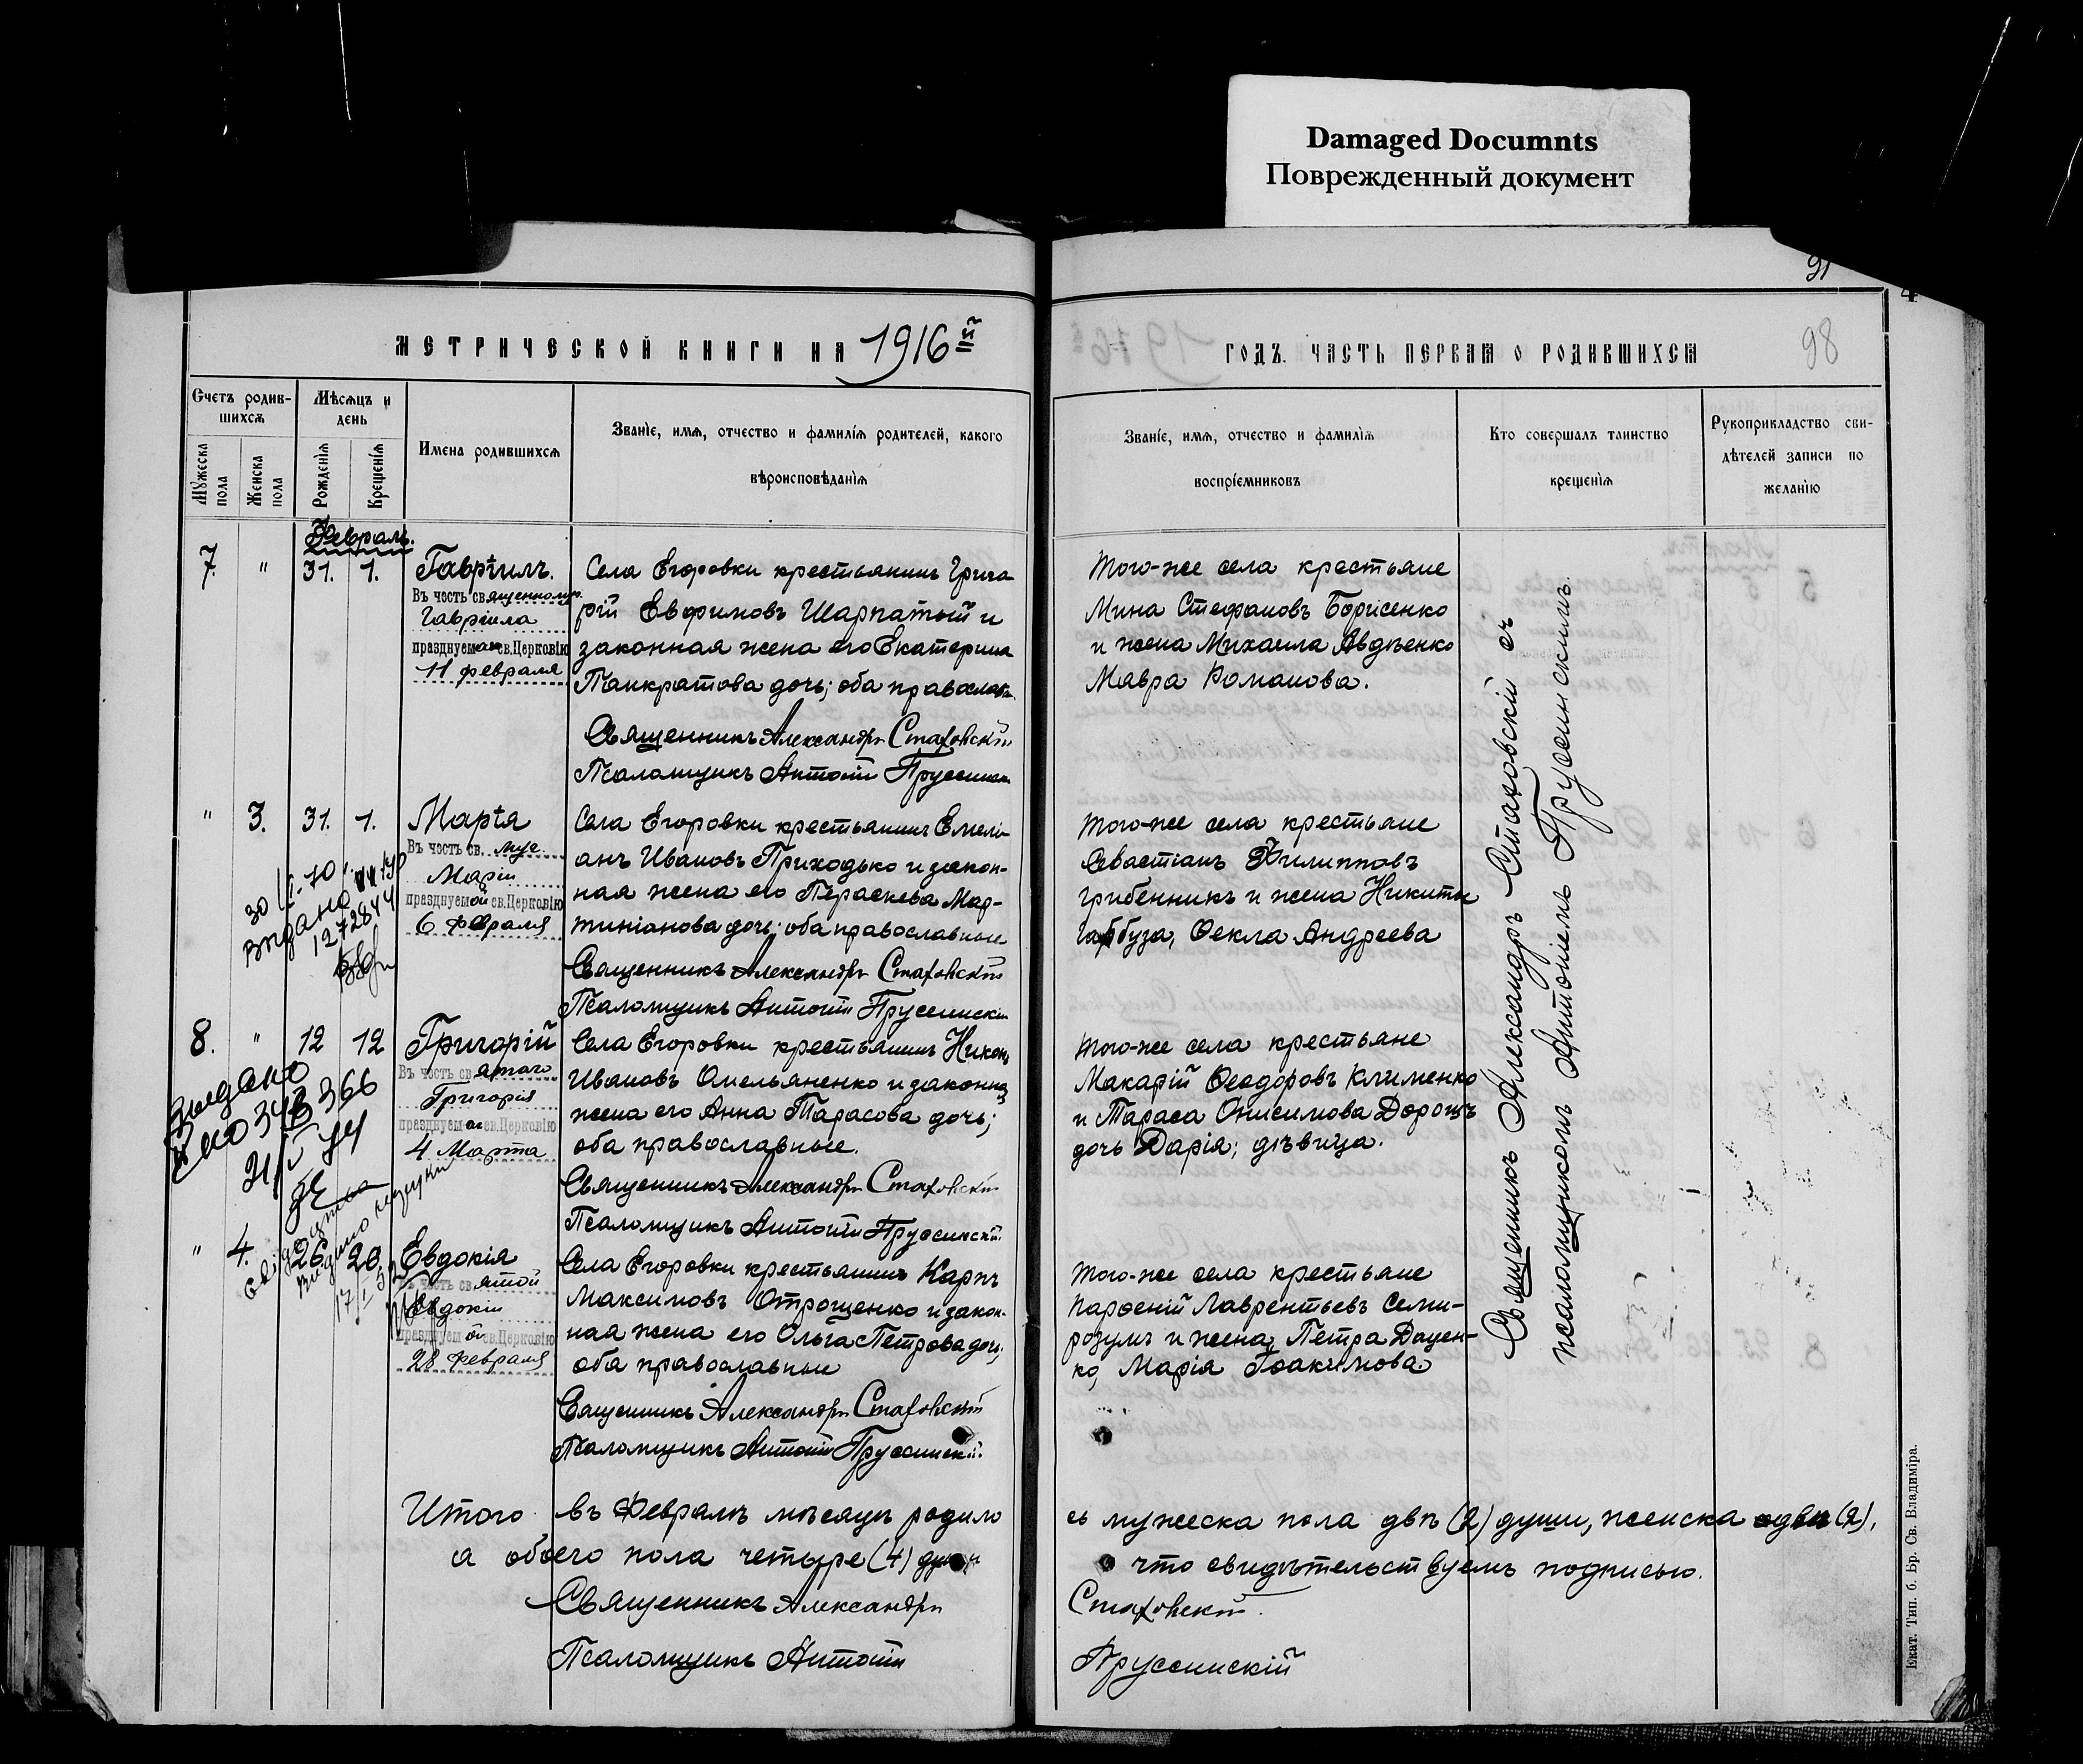 Damaged Documnts
Поврежденный документ
91
4
98
МЕТРИЧЕСКОЙ КНИГИ НА 1916й
ГОДЪ. ЧАСТЬ ПЕРВАЯ О РОДИВШИХСЯ
Счетъ родив-
шихся
Мужеска пола
Женска пола
Мѣсяцъ и день
Рожденія
Крещенія
Имена родившихся
Званіе, имя, отчество и фамилія родителей, какого
вѣроисповѣданія
Званіе, имя, отчество и фамилія
воспріемниковъ
Кто совершалъ таинство
крещенія
Рукоприкладство сви-
дѣтелей записи по
желанію
Февраль.
7. " 31. 1. Гавріилъ.
Въ честь священномуч.
Гавріила
празднуемаго св. Церковію
11 февраля
Села Егоровки крестьянинъ Григо
рій Евфимовъ Шарпатый и
законная жена его Екатерина
Панкратова дочь; оба православн.
Священникъ Александръ Стаховскій
Псаломщикъ Антоній Пруссинскій
Того-же села крестьяне
Мина Стефановъ Борисенко
и жена Михаила Авдѣенко
Мавра Романова.
" 3. 31. 1. Марія
Въ честь св. муч.
Маріи
празднуемой св. Церковію
6 февраля
30/I-70
выдано
1272844
Села Егоровки крестьянинъ Емелі-
анъ Ивановъ Приходько и закон-
ная жена его Параскева Мар-
тиніанова дочь; оба православные
Священникъ Александръ Стаховскій
Псаломщикъ Антоній Пруссинскій
Того-же села крестьяне
Севастіанъ Филипповъ
Грибенникъ и жена Никиты
Гарбуза, Ѳекла Андреева
8. " 12 12 Григорій
Въ честь святаго
Григорія
празднуемаго св. Церковію
4 Марта
Выдано
Села Егоровки крестьянинъ Никонъ
Ивановъ Омельяненко и законная
жена его Анна Тарасова дочь;
оба православные.
Священникъ Александръ Стаховскій
Псаломщикъ Антоній Пруссинскій
Того-же села крестьяне
Макарій Ѳеодоровъ Клименко
и Тараса Онисимова Дорошъ
дочь Дарія; дѣвица.
" 4. 26. 28. Евдокія
Въ честь святой
Евдокіи
празднуемой св. Церковію
28 февраля
Села Егоровки крестьянинъ Карпъ
Максимовъ Отрощенко и закон-
ная жена его Ольга Петрова дочь;
оба православные
Священникъ Александръ Стаховскій
Псаломщикъ Антоній Пруссинскій.
Того-же села крестьяне
Парѳеній Лаврентьевъ Семи-
розумъ и жена Петра Доцен-
ко, Марія Іоакимова.
Священникъ Александръ Стаховскій съ
псаломщикомъ Антоніемъ Пруссинскимъ.
Итого въ Февралѣ мѣсяцѣ родило
сь мужеска пола двѣ (2) души, женска двѣ (2),
а обоего пола четыре (4) души
что свидѣтельствуемъ подписью.
Священникъ Александръ
Стаховскій.
Псаломщикъ Антоній
Пруссинскій
Екат. Тип. б. Бр. Св. Владиміра.